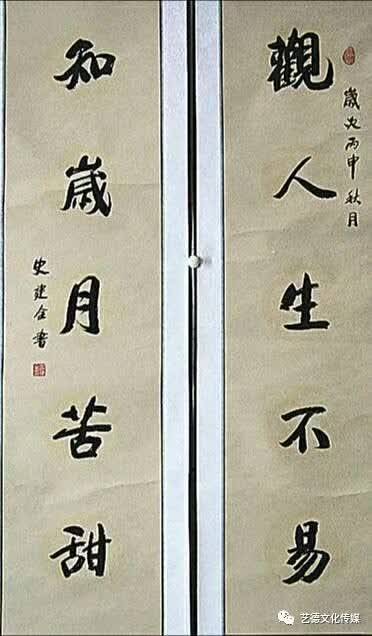 觀人生不易
歲次丙申秋月
知歲月苦甜
史建全書
艺德文化传媒